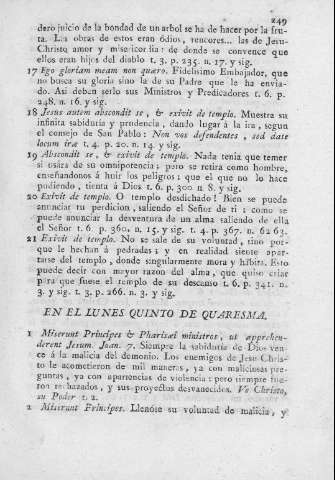 249
dero juicio de la bondad de un arbol se ha de hacer por la fru-
ta. Las obras de estos eran ódios, rencores... las de Jesu-
Christo amor y misericordia: de donde se convence que
ellos eran hijos del diablo t. 3. p. 235. n. 17. y sig.
17 Ego gloriam meam non quæro. Fidelísimo Embajador, que
no busca su gloria sino la de su Padre que le ha envia-
do. Asi deben serlo sus Ministros y Predicadores t. 6. p.
248. n. 16. y sig.
18 Jesus autem abscondit se, & exivit de templo. Muestra su
infinita sabiduría y prudencia, dando lugar á la ira, segun
el consejo de San Pablo: Non vos defendentes, sed date
locum iræ t. 4. p. 20. n. 14. y sig.
19 Abscondit se, & exivit de templo. Nada tenia que temer
si usára de su omnipotencia; pero se retira como hombre,
enseñandonos á huir los peligros; que el que no lo hace
pudiendo, tienta á Dios t. 6. p. 300. n. 8. y sig.
20 Exivit de templo. O templo desdichado! Bien se puede
anunciar tu perdicion, saliendo el Señor de ti; como se
puede anunciar la desventura de un alma saliendo de ella
el Señor t. 6. p. 360. n. 15. y sig. t. 4. p. 367. n. 62 63.
21 Exivit de templo. No se sale de su voluntad, sino por-
que le hechan á pedradas; y en realidad siente apar-
tarse del templo, donde singularmente mora y habita. Esto
puede decir con mayor razon del alma, que quiso criar
para que fuese el templo de su descanso t. 6. p. 341. n.
3. y sig. t. 3. p. 266. n. 3. y sig.
EN EL LUNES QUINTO DE QUARESMA.
1 Miserunt Principes & Pharisæi ministros, ut apprehen-
derent Jesum. Joan. 7. Siempre la sabiduría de Dios ven-
ce á la malicia del demonio. Los enemigos de Jesu-Chris-
to le acometieron de mil maneras, ya con maliciosas pre-
guntas, ya con apariencias de violencia: pero siempre fue-
ron rechazados, y sus proyectos desvanecidos. Ve Christo,
su Poder t. 2.
2 Miserunt Principes. Llenóse su voluntad de malicia, y